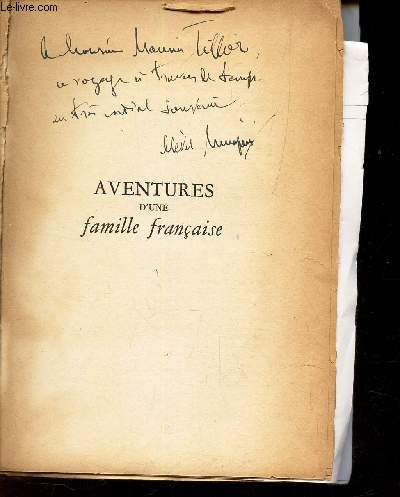 Le-livre.com
A Monsieur Maurice Tellier,
ce voyage à travers le temps
en très cordial souvenir
AVENTURES
D'UNE
famille française